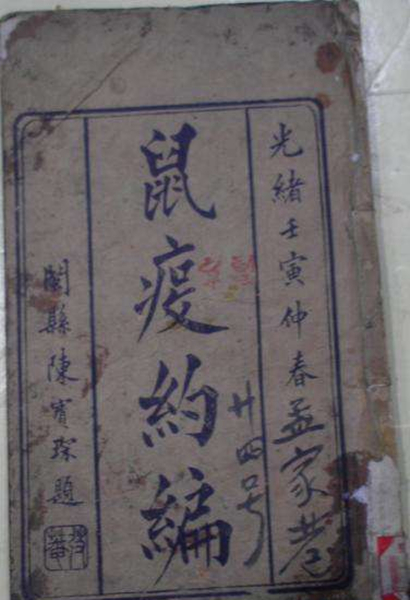 光緒壬寅仲春
孟家巷
廿四号
鼠疫約編
閩縣陳寶琛題